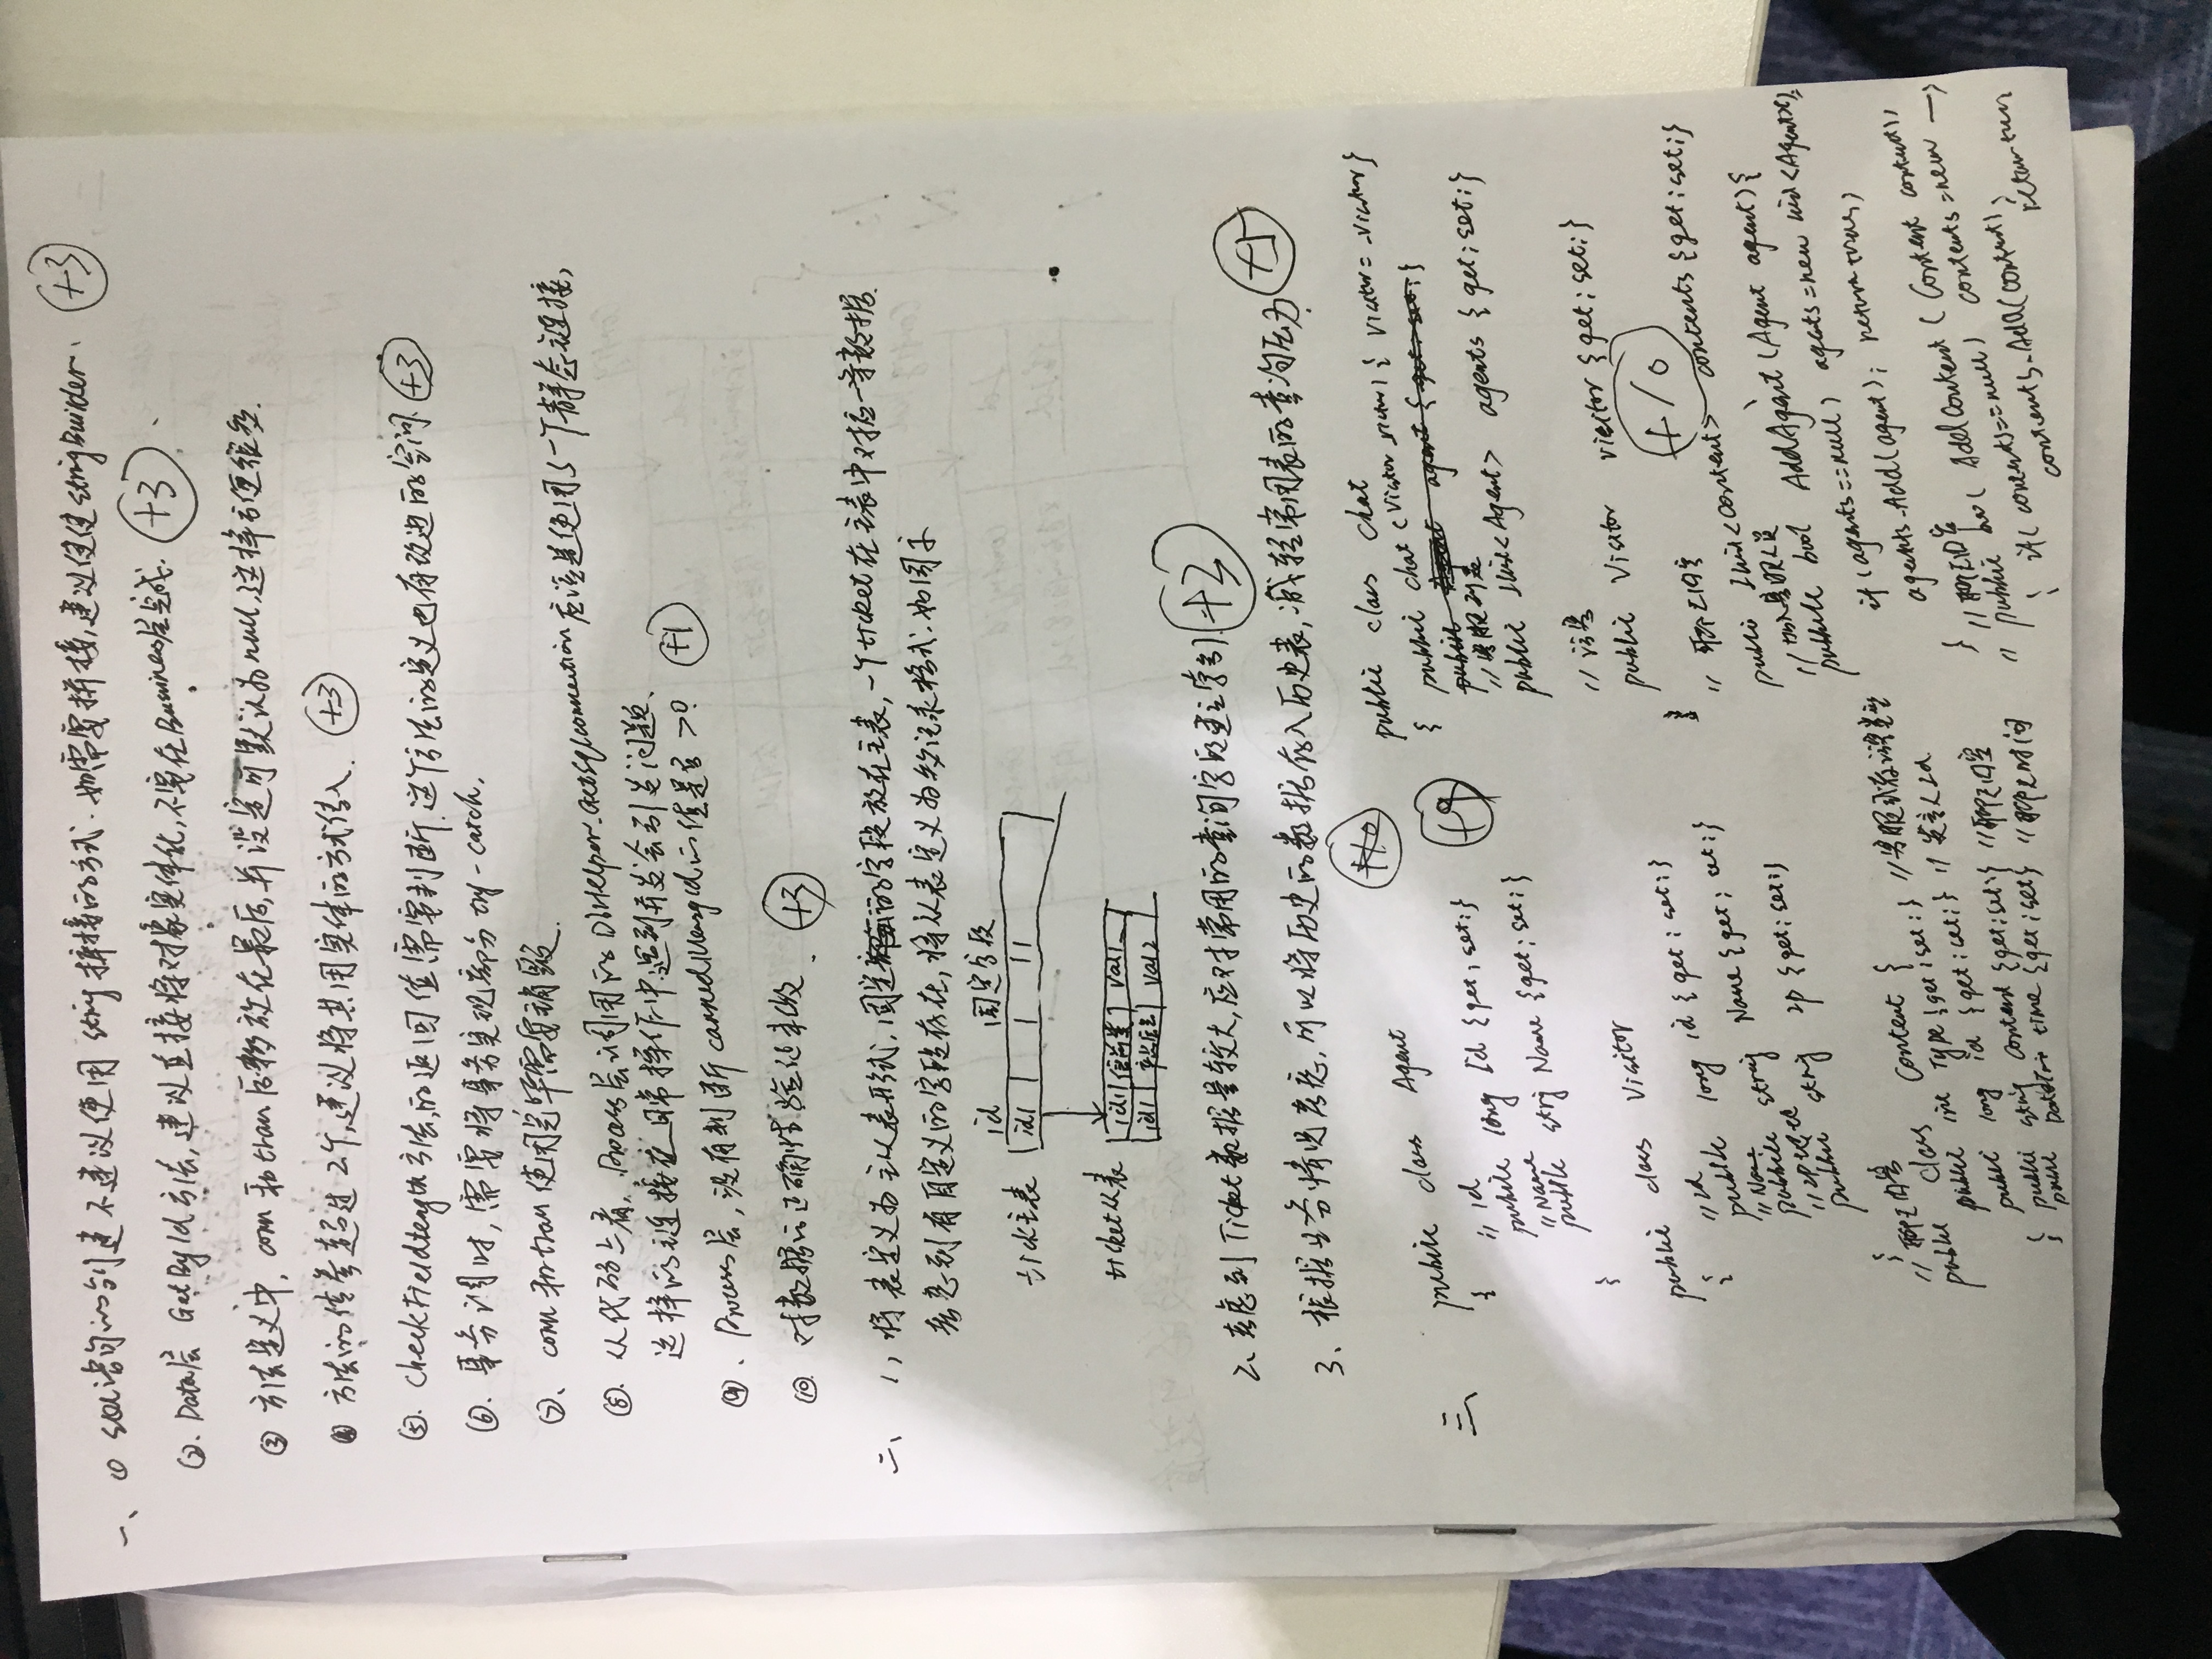 一、① SQL语句的创建不建议使用 string 拼接的方式. 如需要拼接,建议使使 stringBuilder. +3
②. Data层 GetById 方法, 建议直接将对象实体化, 不要在Business层完成. +3
③ 方法定义中, conn 和 tran 后移放在最后, 并设定可默认为null, 这样方便很多.
④ 方法的传参超过2个, 建议将其用实体的方式传入. +3
⑤. CheckFieldLength方法的返回值需要判断. 这个方法的定义也有改进的空间. +3
⑥. 事务调时, 需要将事务实现部分 try-catch.
⑦、conn 和 tran 使用完毕需要销毁.
⑧. 从代码上看, Process层调用的 DbHelper.GetSqlconnection 应该是使用了一个静态连接,
这样的连接在日常操作中遇到并发会引发问题.
⑨、Process层, 没有判断 cannedMessageId 的值是否 >0? +1
⑩ 对数据的正确性验证未做. +3
二、1, 将表定义为主从表形式, 固定的字段放在主表, 一个ticket在主表中对应一条数据.
考虑到有自定义的字段存在, 将从表定义为多记录格式. 如图示
id 固定字段
tick主表 id1
ticket从表 id1 val1
id1 val2
2、考虑到 Ticket 数据量较大, 应对常用的查询字段建立索引. +3
3、根据业务情况考虑, 可以将历史的数据存入历史表, 减轻常用表的查询压力. +5
+10
三、public class Agent +9
{ // Id
public long Id {get; set;}
// Name
public string Name {get; set;}
}
public class Visitor
{ // Id
public long id {get; set;}
// Name
public string Name {get; set;}
// IP
public string IP {get; set;}
}
// 聊天内容
public class Content {
public int Type {get; set;} // 客服或者访客类型
public long id {get; set;} // 发言人Id
public string content {get; set;} // 聊天内容
public DateTime time {get; set} // 聊天时间
}
public class chat
{ public chat (Visitor _visitor) { Visitor = _visitor }
public Agent agent { get; set; }
// 客服列表
public Ilist<Agent> agents {get; set;}
// 访客
public Visitor visitor {get; set;}
+10
// 聊天内容
public Ilist<Content> contents {get; set;}
// 加入客服人员
public bool AddAgent (Agent agent) {
if (agents==null) agents = new list<Agent>();
agents.Add(agent); return true;
}
// 聊天内容
public bool AddContent (Content content),
{ if (contents==null) contents = new →
contents.Add(content);
return true